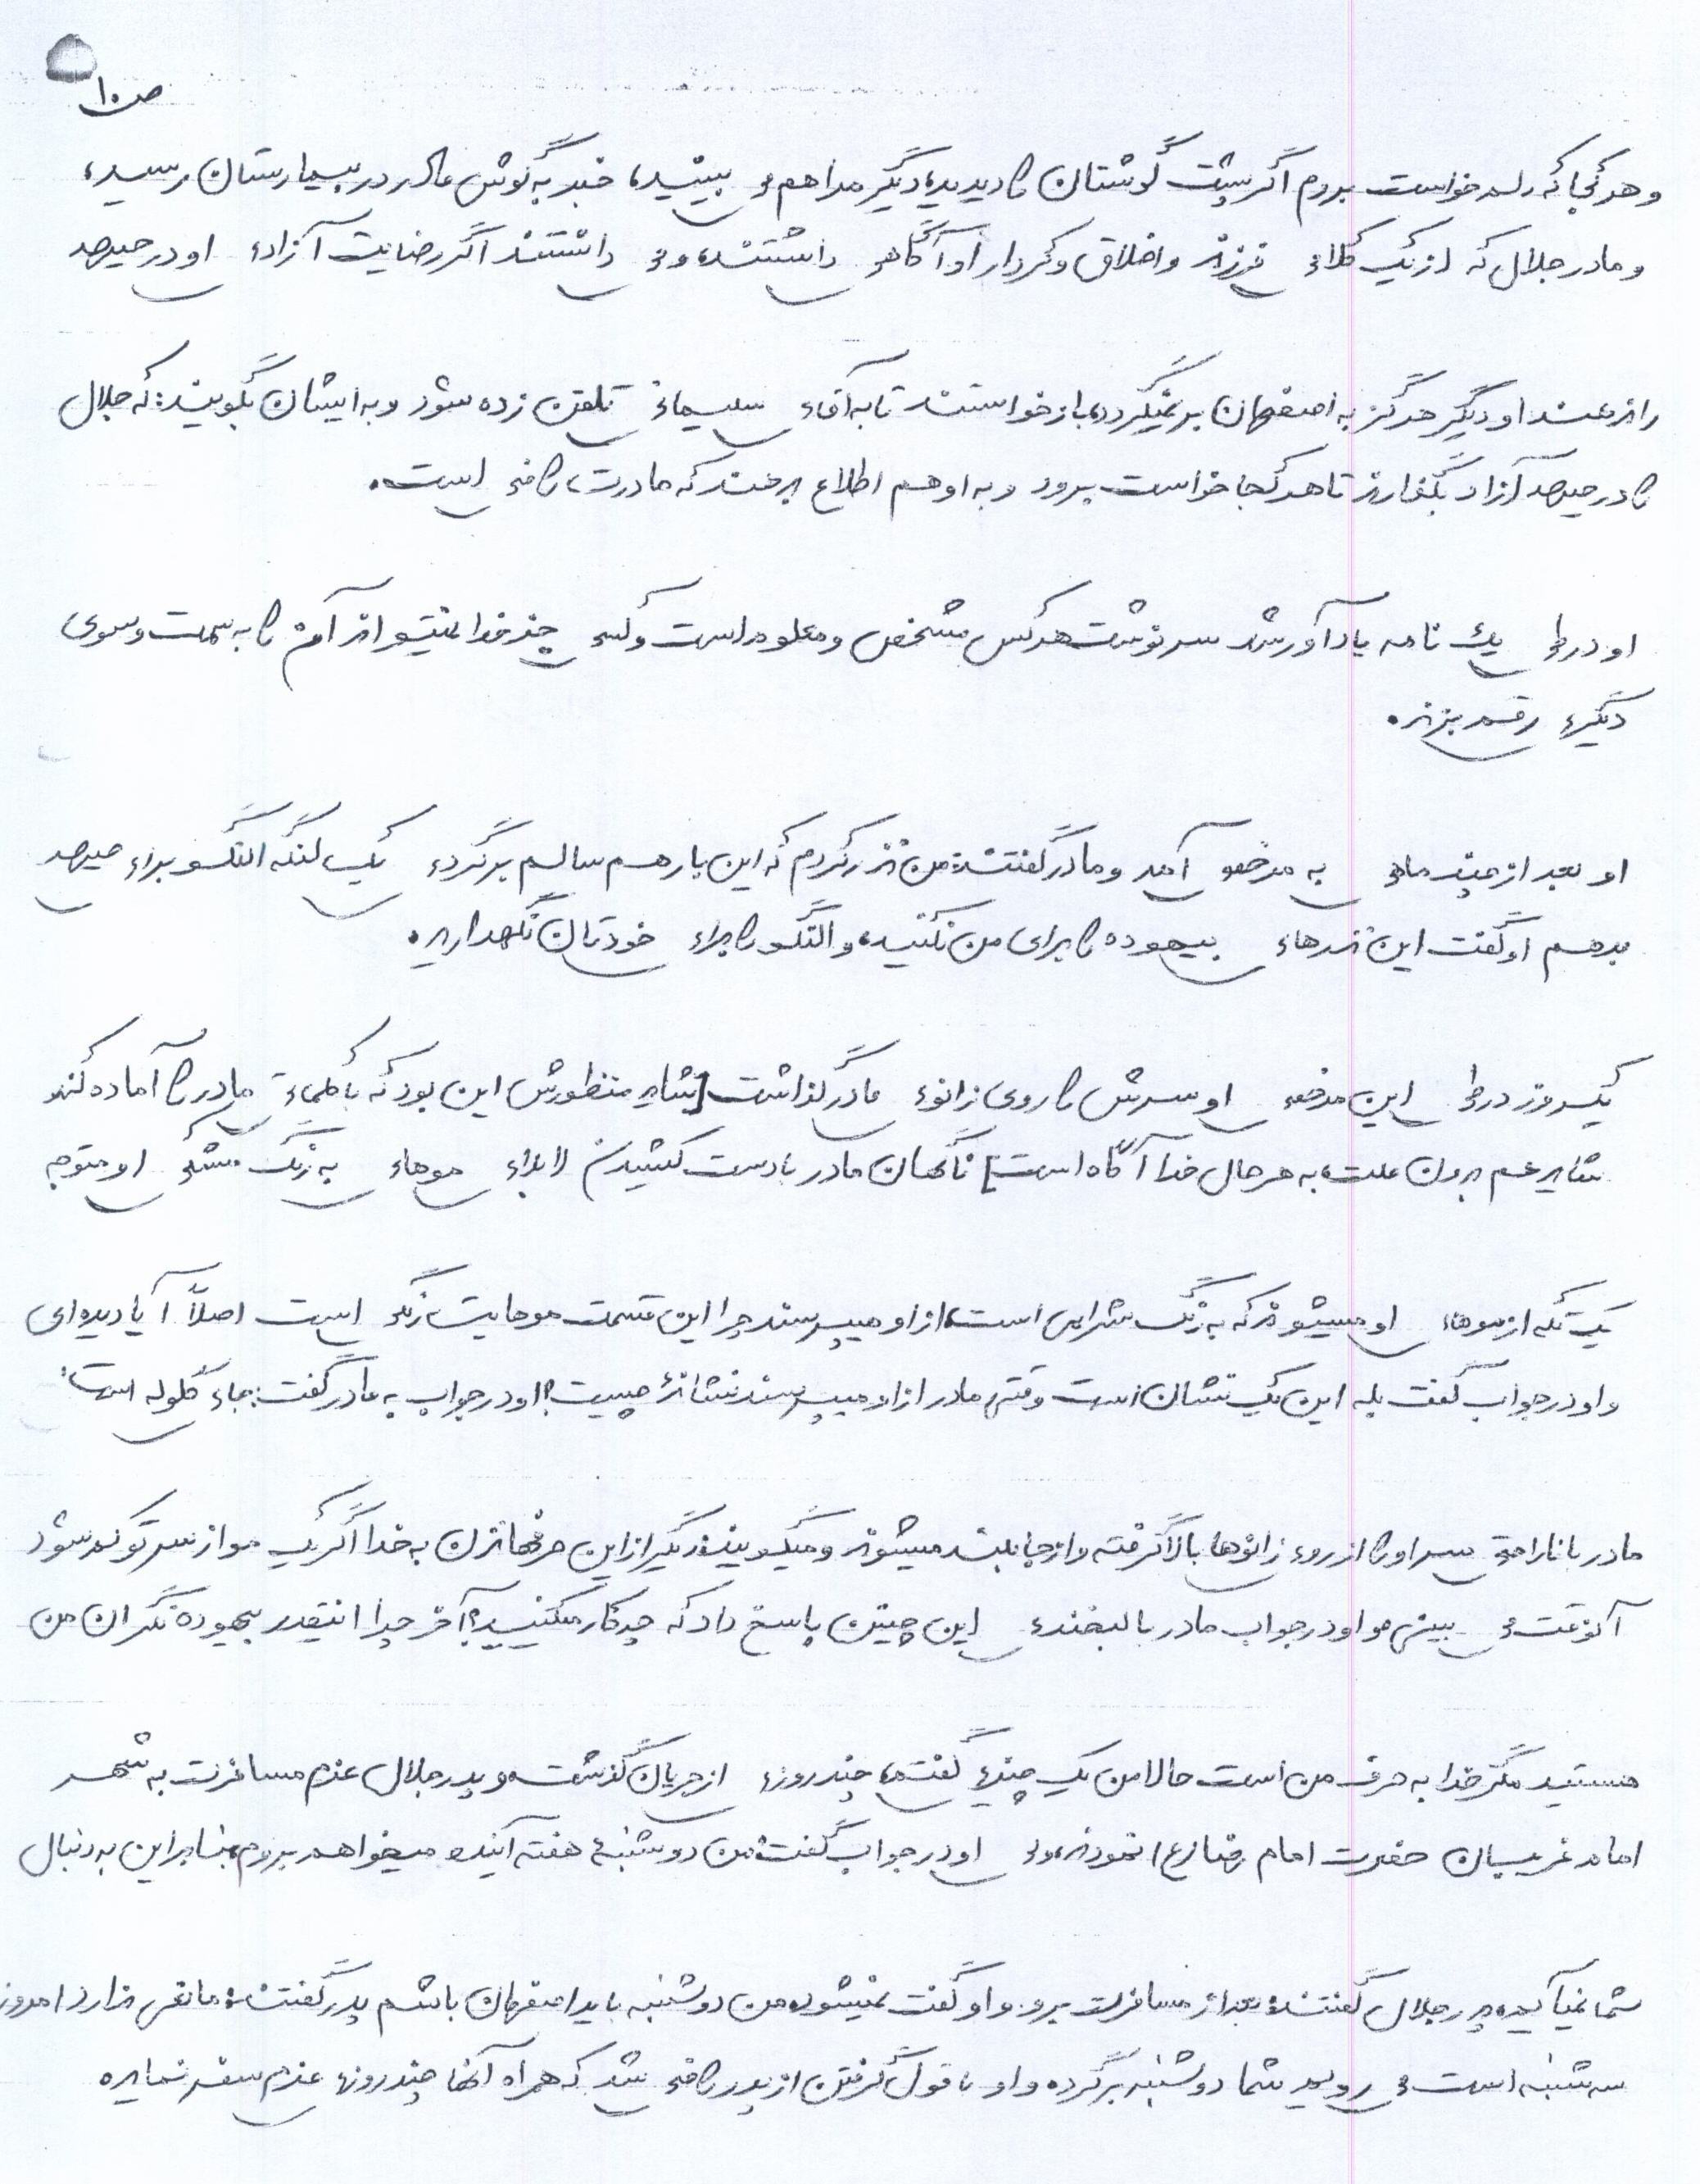 ص۱۰
و هر کجا که دلم خواست بروم اگر پشت گوشتان را دیدید، دیگر مرا هم می بینید، خبر به گوش مادر در بیمارستان رسید،
و مادر جلال که از یک کلامی فرزند و اخلاق و کردار او آگاهی داشتند، و می دانستند اگر رضایت آزادی او در جبهه
را ندهند او دیگر هرگز به اصفهان برنمیگردد، باز خواستند تا به آقای سلیمانی تلفن زده شود و به ایشان بگویند: که جلال
را در جبهه آزاد بگذارند تا هر کجا خواست برود و به او هم اطلاع بدهند که مادرت راضی است.
او در طی یک نامه یادآور شد سرنوشت هر کس مشخص و معلوم است و کسی جز خدا نمیتواند آن را به سمت و سوی
دیگری رقم بزند.
او بعد از چند ماهی به مرخصی آمد و مادر گفتند: من نذر کردم که این بار هم سالم برگردی یک لنگه النگو برای جبهه
بدهم او گفت این نذرهای بیهوده را برای من نکنید، و النگو را برای خودتان نگهدارید.
یکروز در طی این مرخصی او سرش را روی زانوی مادر گذاشت [شاید منظورش این بود که با کلماتی مادر را آماده کند
شاید هم بدون علت، به هر حال خدا آگاه است] ناگهان مادر با دست کشیدن لابلای موهای به رنگ مشکی او متوجه
یک تکه از موهای او میشوند که به رنگ شرابی است، از او میپرسند چرا این قسمت موهایت رنگی است اصلاً آیا دیده‌ای
و او در جواب گفت بله این یک نشان است وقتی مادر از او میپرسند نشانهٔ چیست؟ او در جواب به مادر گفت: جای گلوله است
مادر با ناراحتی سر او را از روی زانوها بالا گرفته و از جا بلند میشوند و میگویند: دیگر از این حرفها نزن به خدا اگر یک مو از سر تو کم شود
آنوقت می بینی و او در جواب مادر با لبخندی این چنین پاسخ داد که چه کار میکنید؟ آخر چرا اینقدر بیهوده نگران من
هستید مگر خدا به حرف من است حالا من یک چیزی گفتم، چند روزی از جریان گذشت و پدر جلال عزم مسافرت به شهر
امام غریبان حضرت امام رضا (ع) نمودند، ولی او در جواب گفت: من دوشنبهٔ هفته آینده میخواهم بروم بنابراین به دنبال
شما نمیآیم، پدر جلال گفتند: بعد از مسافرت برو و او گفت نمیشود، من دوشنبه باید اصفهان باشم پدر گفتند: مانعی ندارد امروز
سه شنبه است می رویم شما دوشنبه برگرد، و او با قول گرفتن از پدر راضی شد که همراه آنها چند روزی عزم سفر نماید